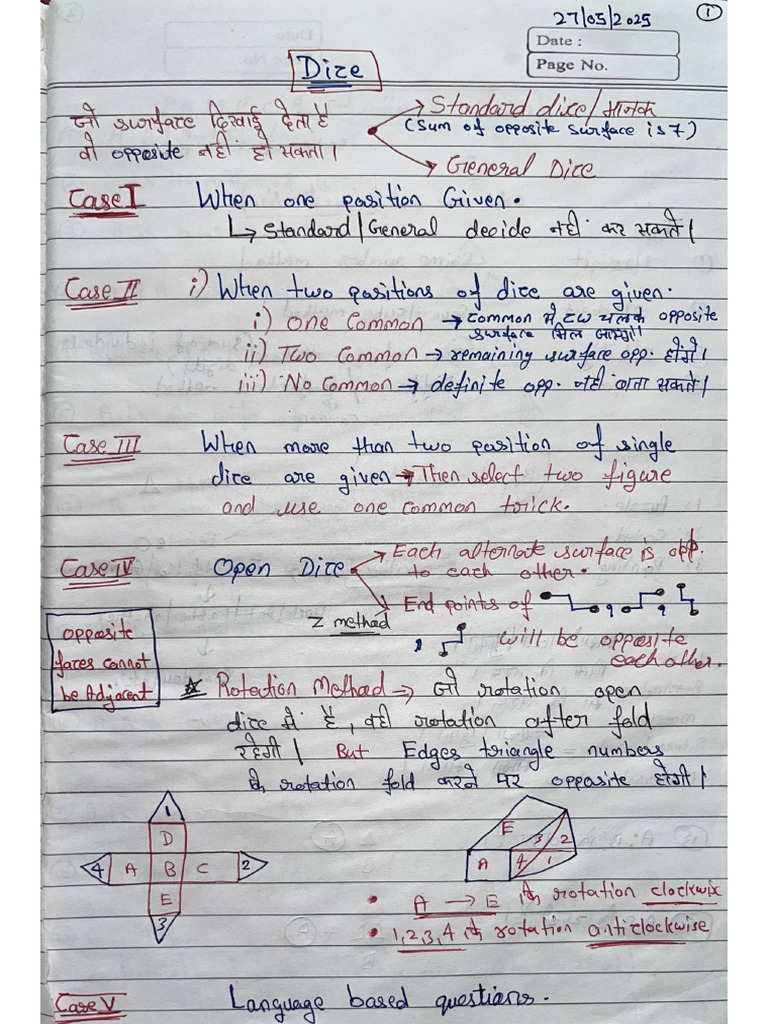 27/05/2025
1
Date :
Page No.
Dice
जो surface दिखाई देता है
वो opposite नहीं हो सकता।
Standard dice/मानक
(Sum of opposite surface is 7)
General Dice
Case I When one position Given.
↳ Standard/General decide नहीं कर सकते।
Case II i) When two positions of dice are given.
i) One Common → Common से CW चलके opposite
surface मिल जाएगा।
ii) Two Common → remaining surface opp. होंगे।
iii) No Common → definite opp. नहीं बता सकते।
Case III When more than two position of single
dice are given → Then select two figure
and use one common trick.
Case IV Open Dice
Each alternate surface is opp.
to each other.
End points of
Z method
will be opposite
each other.
opposite
faces cannot
be Adjacent
Rotection Method → जो rotation open
dice में है, वही rotation after fold
रहेगी। But Edges triangle numbers
के rotation fold करने पर opposite होगी।
1
D
4 A B C 2
E
3
E
3 2
A 4 1
• A → E के rotation clockwix
• 1,2,3,4 के rotation anticlockwise
Case V Language based questions.